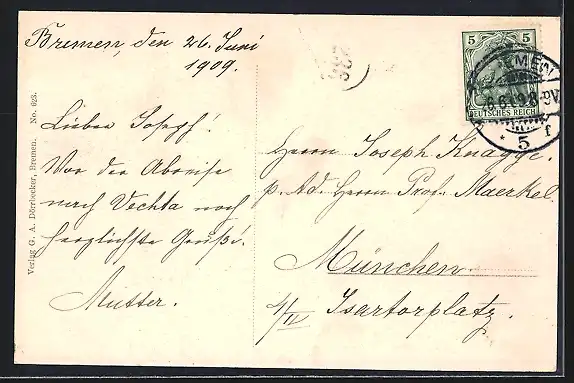 Bremen, den 26. Juni
1909.
Lieber Joseph!
Vor der Abreise
nach Vechta noch
herzlichste Grüße!
Mutter.
Verlag G. A. Dörrbecker, Bremen. No. 623.
5 5
DEUTSCHES REICH
5 f
Herrn Joseph Knagge.
p. Ad. Herrn Prof. Maerkel.
München.
4/IV Isartorplatz.